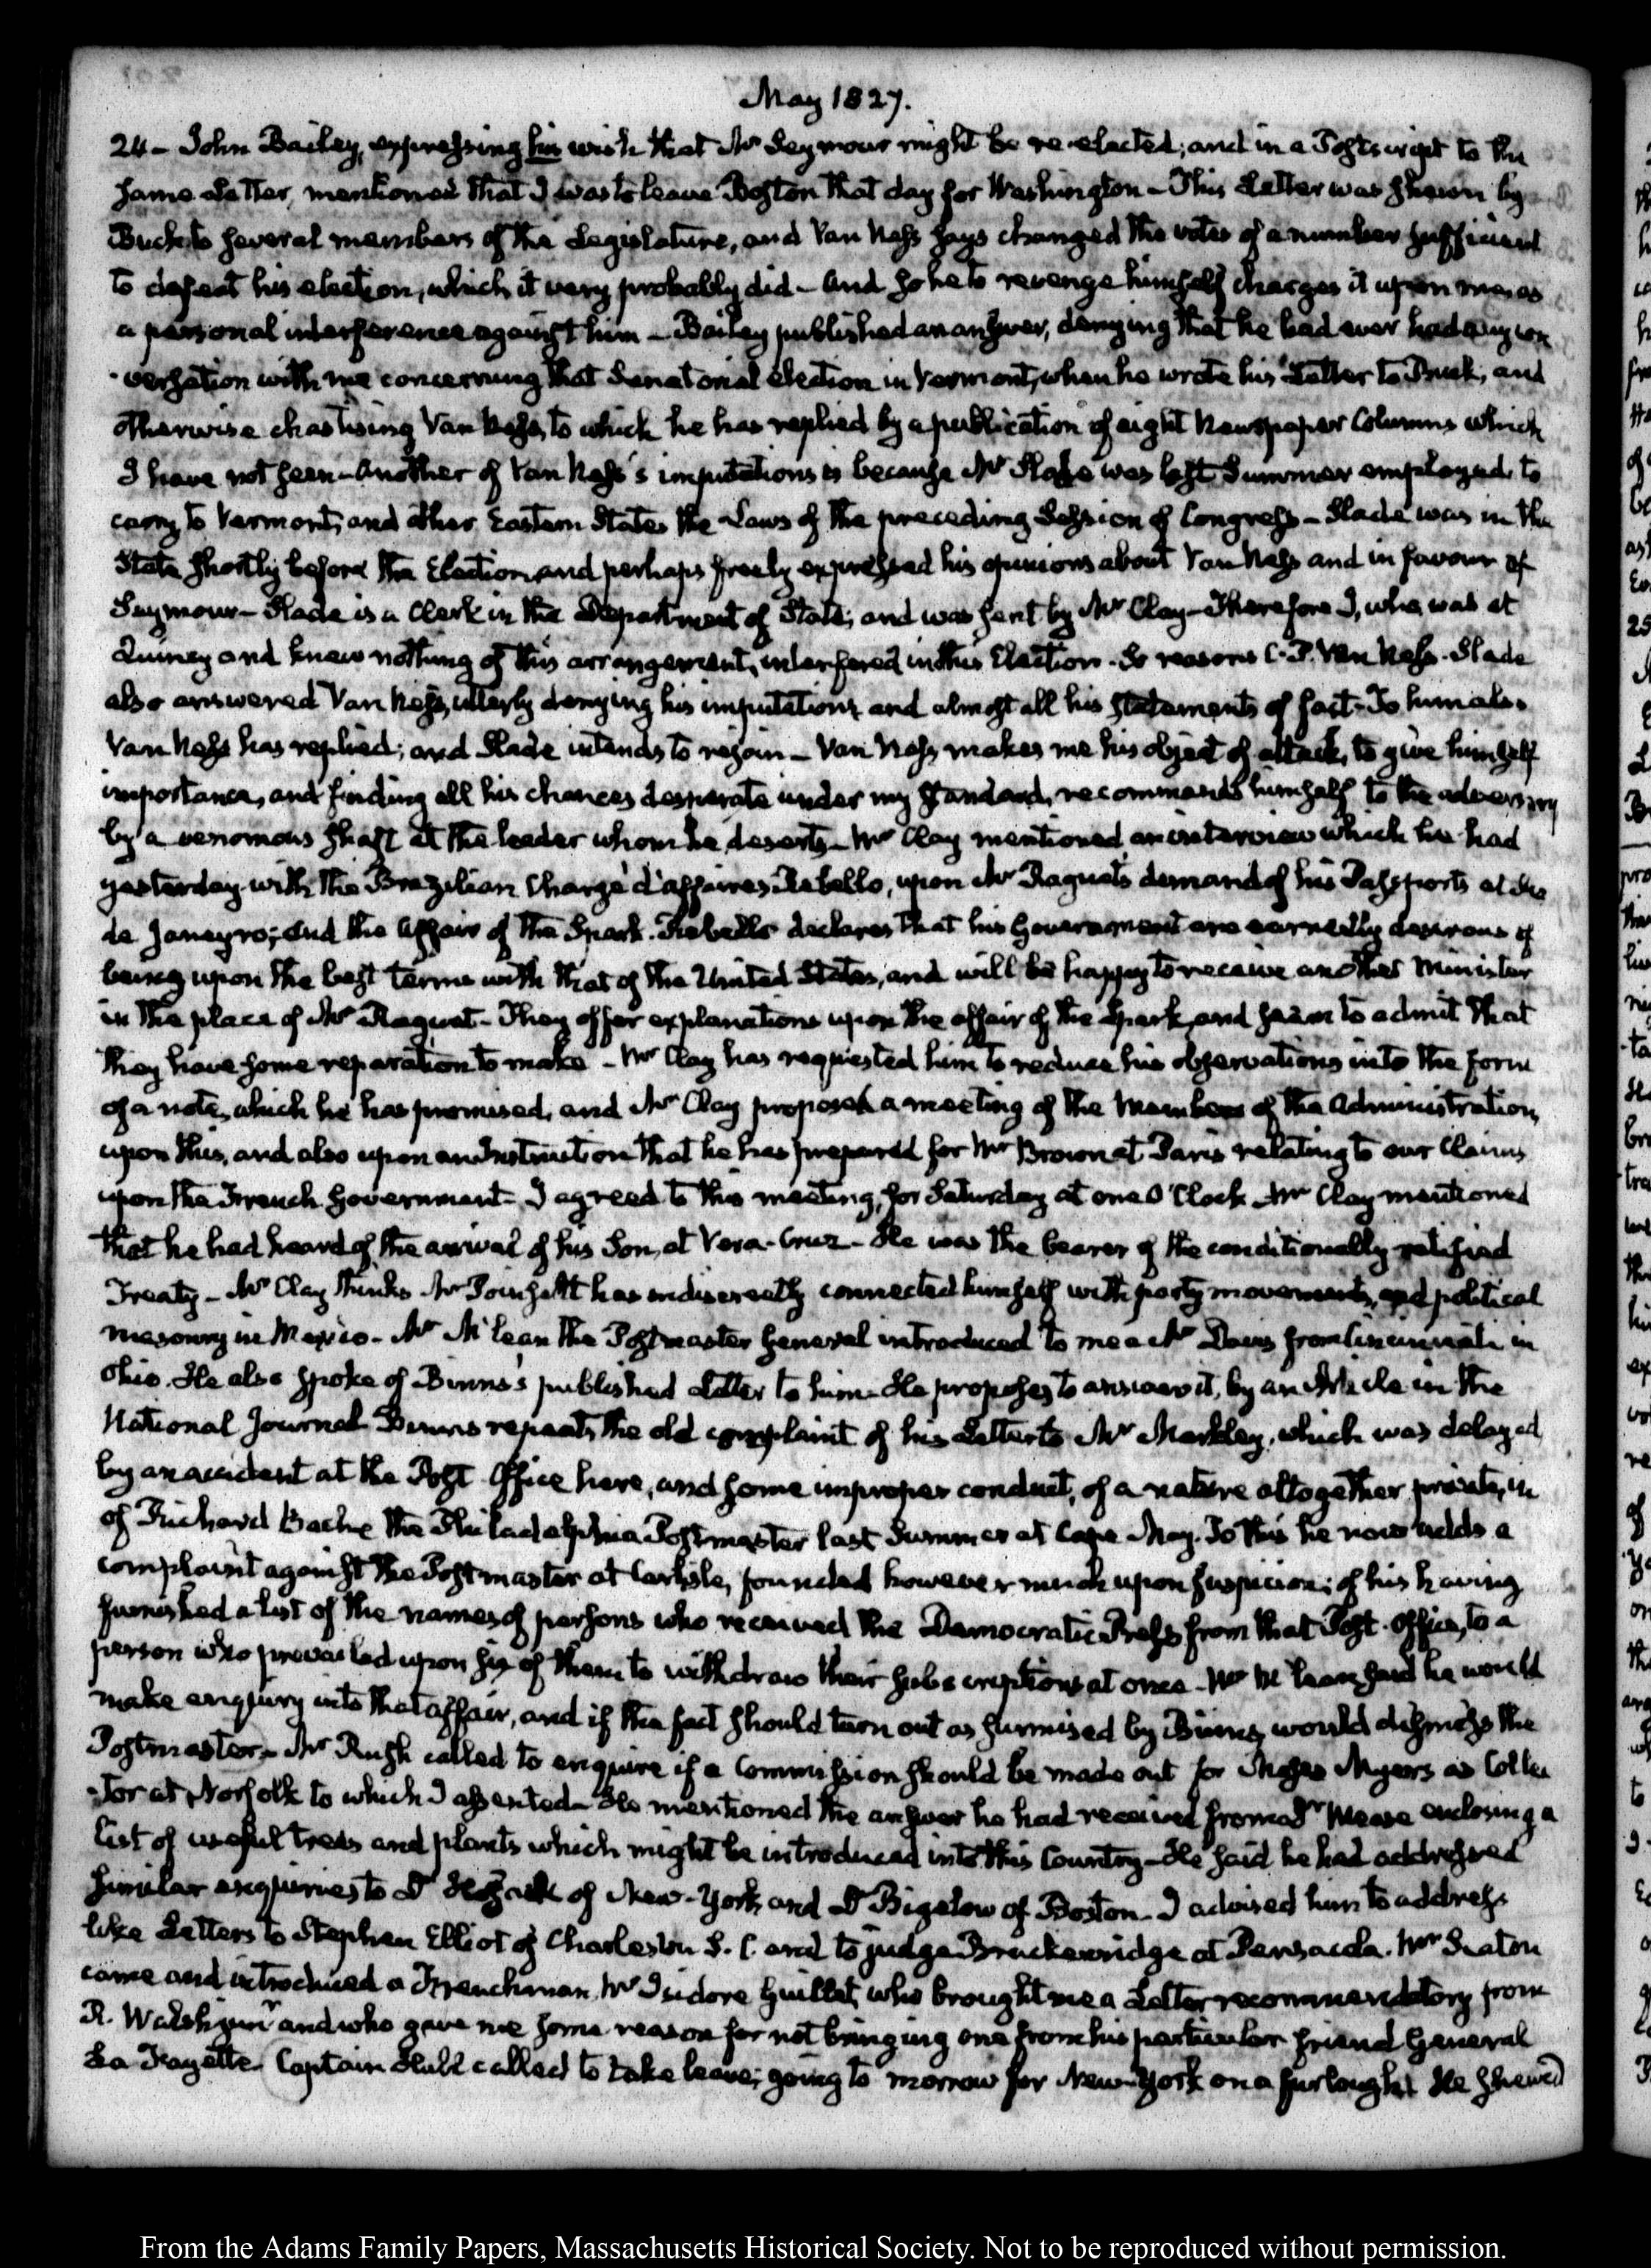 May 1827.
24 – John Bailey, expressing his wish that Mr Seymour might be re-elected; and in a Postscript to the
same Letter, mentioned that I was to leave Boston that day for Washington – This Letter was shewn by
Buck to several members of the Legislature, and Van Ness says changed the votes of a number sufficient
to defeat his election, which it very probably did – And so he to revenge himself charges it upon me, as
a personal interference against him – Bailey published an answer, denying that he had ever had any con
-versation with me concerning that Senatorial Election in Vermont, when he wrote his Letter to Buck, and
otherwise chastising Van Ness, to which he has replied by a publication of eight Newspaper Columns which
I have not seen – Another of Van Ness's imputations is because Mr Slade was last Summer employed to
carry to Vermont, and other Eastern States the Laws of the preceding Session of Congress – Slade was in the
State shortly before the Election and perhaps freely expressed his opinions about Van Ness and in favour of
Seymour – Slade is a Clerk in the Department of State; and was sent by Mr Clay – Therefore I, who was at
Quincy and knew nothing of this arrangement, interfered in this Election. So reasons C. P. Van Ness. Slade
also answered Van Ness, utterly denying his imputations and almost all his statements of fact – To him also
Van Ness has replied; and Slade intends to rejoin – Van Ness makes me his object of attack, to give himself
importance, and finding all his chances desperate under my standard, recommends himself to the adversary
by a venomous shaft at the leader whom he deserts – Mr Clay mentioned an interview which he had
yesterday with the Brazilian Chargé d'affaires Rebello, upon Mr Raguet's demand of his Passports at Rio
de Janeyro; and the affair of the Spark. Rebello declares that his Government are earnestly desirous of
being upon the best terms with that of the United States, and will be happy to receive another Minister
in the place of Mr Raguet – They offer explanations upon the affair of the Spark, and seem to admit that
they have some reparation to make – Mr Clay has requested him to reduce his observations into the form
of a note, which he has promised, and Mr Clay proposed a meeting of the Members of the Administration,
upon this, and also upon an Instruction that he has prepared for Mr Brown at Paris relating to our Claims
upon the French Government – I agreed to this meeting, for Saturday at one O'Clock – Mr Clay mentioned
that he had heard of the arrival of his Son, at Vera-Cruz – He was the bearer of the conditionally ratified
Treaty – Mr Clay thinks Mr Poinsett has indiscreetly connected himself with party movements, and political
masonry in Mexico – Mr McLean the Postmaster General introduced to me a Mr Davis from Cincinnati in
Ohio. He also spoke of Binns's published Letter to him – He proposes to answer it, by an Article in the
National Journal. Binns repeats the old complaint of his Letter to Mr Markley, which was delayed
by an accident at the Post-Office here, and some improper conduct, of a nature altogether private, in
of Richard Bache the Philadelphia Postmaster last Summer at Cape May. To this he now adds a
complaint against the Postmaster at Carlisle, founded however much upon suspicion; of his having
furnished a list of the names of persons who received the Democratic Press from that Post-Office, to a
person who prevailed upon six of them to withdraw their subscriptions at once – Mr McLean said he would
make enquiry into that affair, and if the fact should turn out as surmised by Binns, would dismiss the
Postmaster – Mr Rush called to enquire if a Commission should be made out for Moses Myers as Collec
-tor at Norfolk to which I assented – He mentioned the answer he had received from a Dr Mease enclosing a
list of useful trees and plants which might be introduced into this Country – He said he had addressed
similar enquiries to Dr Hosack of New-York and Dr Bigelow of Boston – I advised him to address
like Letters to Stephen Elliot of Charleston S. C. and to judge Brackenridge at Pensacola. Mr Seaton
came and introduced a Frenchman Mr Isidore Guillet, who brought me a Letter recommendatory from
R. Walsh junr and who gave me some reason for not bringing one from his particular friend General
La Fayette – Captain Hull called to take leave; going to morrow for New-York on a furlough – He shewed
From the Adams Family Papers, Massachusetts Historical Society. Not to be reproduced without permission.